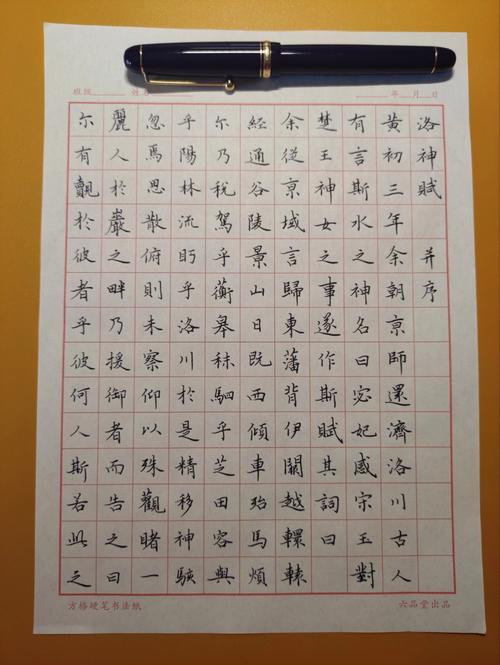 班级 姓名 年 月 日
洛神賦 并序
黄初三年余朝京師還濟洛川古人
有言斯水之神名曰宓妃感宋玉對
楚王神女之事遂作斯賦其詞曰
余從京域言歸東藩背伊闕越轘轅
經通谷陵景山日既西傾車殆馬煩
尔乃稅駕乎蘅皋秣駟乎芝田容與
乎陽林流眄乎洛川於是精移神駭
忽焉思散俯則未察仰以殊觀睹一
麗人於巖之畔乃援御者而告之曰
尔有覿於彼者乎彼何人斯若此之
方格硬笔书法纸
六品堂出品